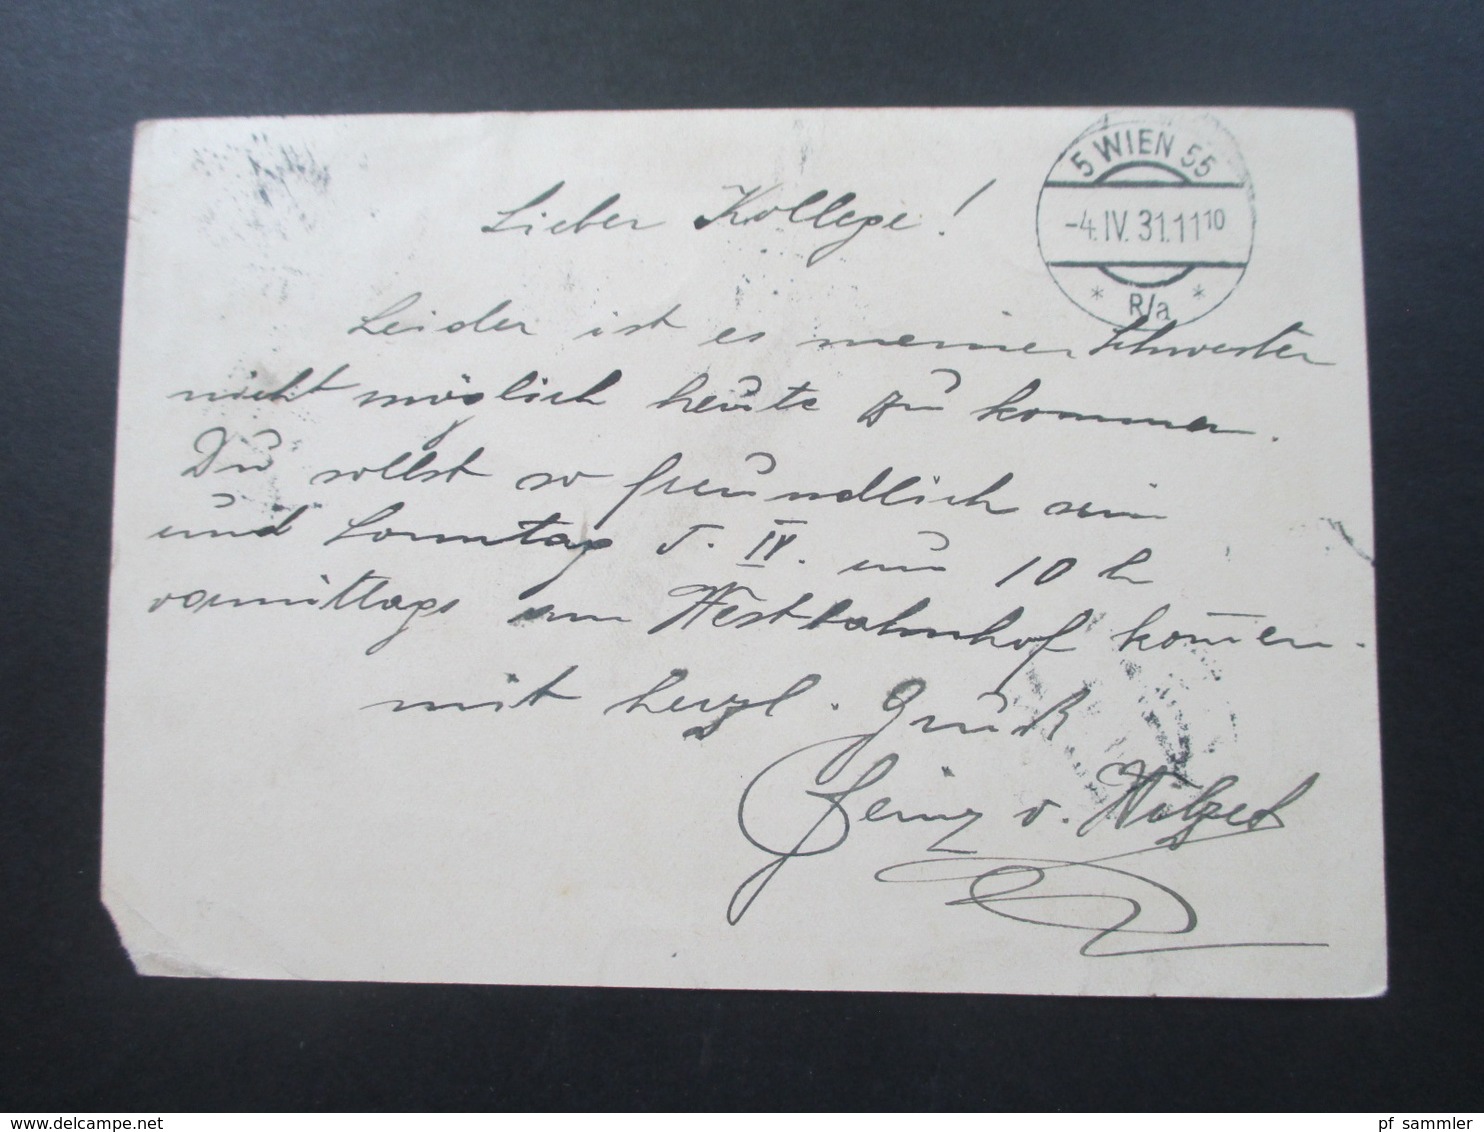 5 WIEN 55
-4.IV.31.11 10
* R/a *
Lieber Kollege!
Leider ist es meiner Schwester
nicht möglich heute zu kommen.
Du sollst so freundlich sein
und Sonntag 5. IV. um 10 h
vormittags am Westbahnhof kom̄en.
mit herzl. Gruß
Heinz v.
www.delcampe.net
pf_sammler